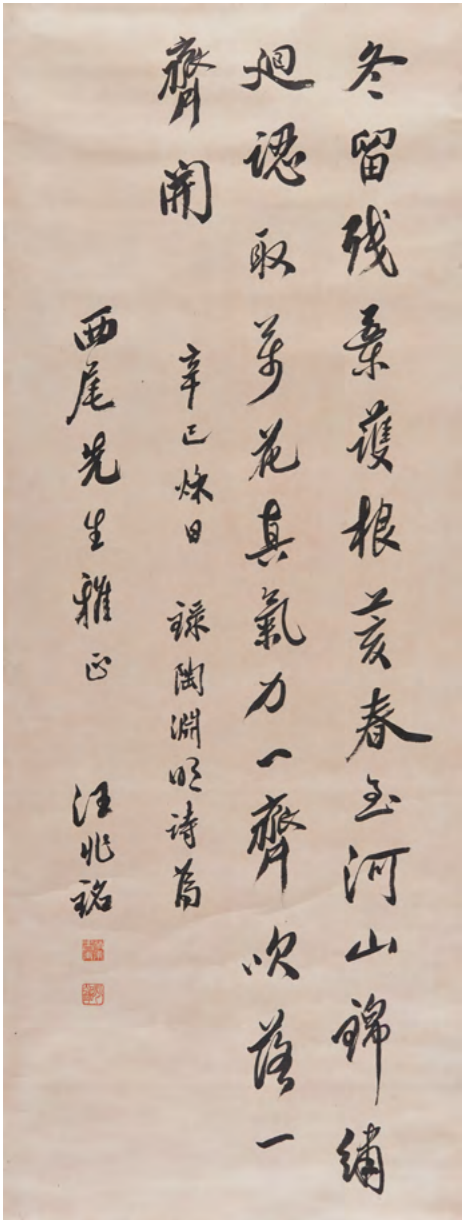 冬留残葉護根荄春至河山錦繡
廻認取萬花真氣力一齊吹落一
齊開
辛巳秌日 録陶淵明詩篇
西尾先生雅正 汪兆銘